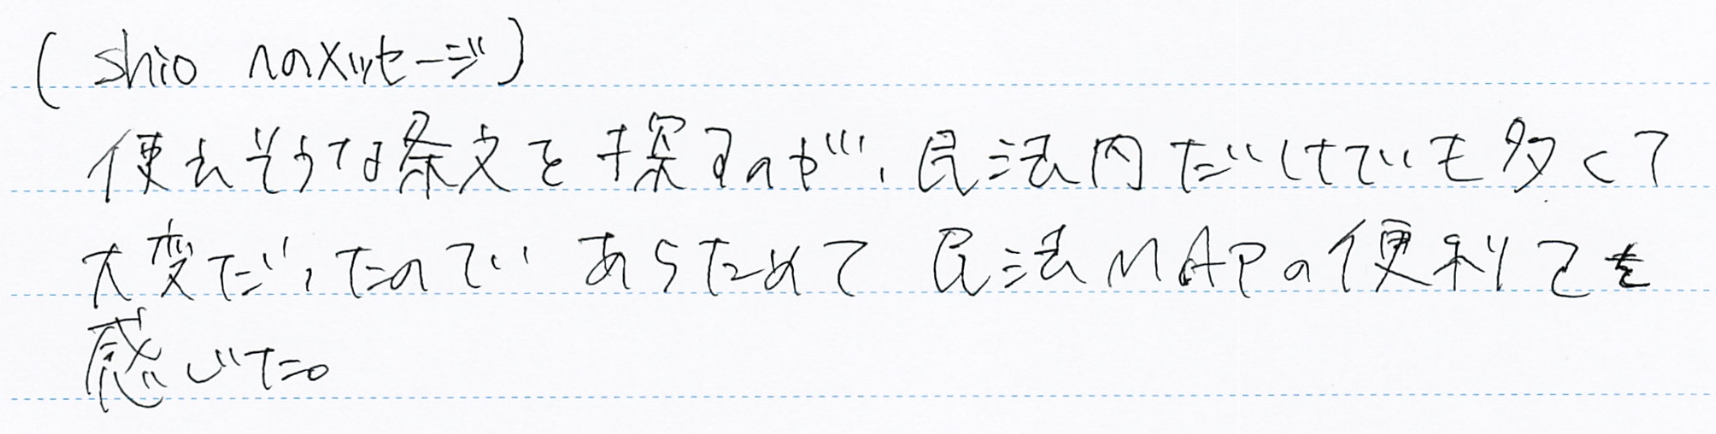 (shioへのメッセージ)
使えそうな条文を探すのが、民法内だけでも多くて
大変だったので、あらためて民法MAPの便利さを
感じた。